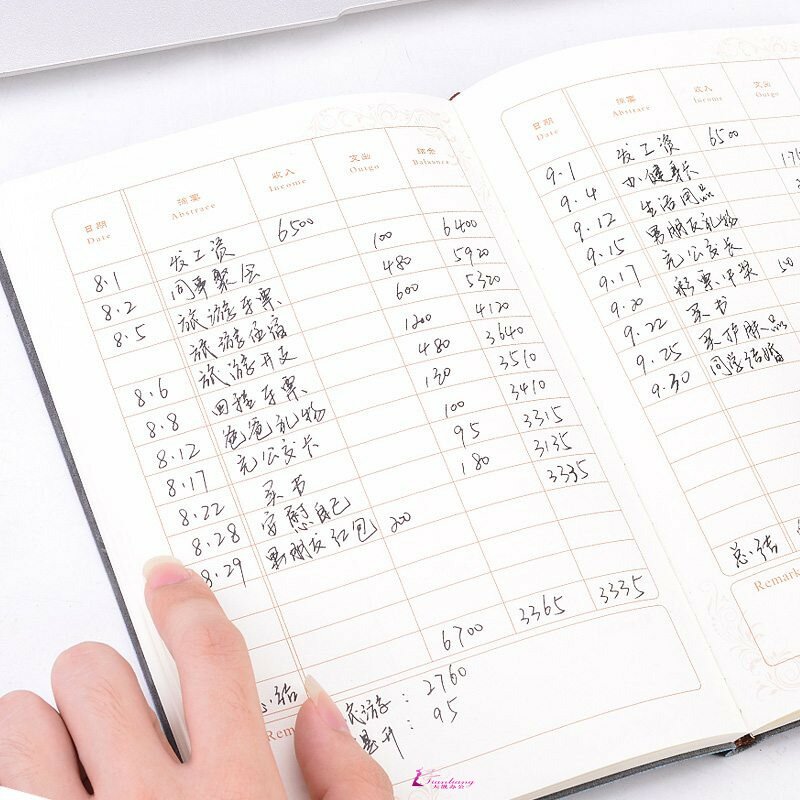 日期 摘要 收入 支出 结余
Date Abstrace Income Outgo Balance
8.1 发工资 6500
8.2 同事聚会 100 6400
8.5 旅游车票 480 5920
旅游住宿 600 5320
8.6 旅游开支 1200 4120
8.8 回程车票 480 3640
8.12 爸爸礼物 130 3510
8.17 充公交卡 100 3410
8.22 买书 95 3315
8.28 安慰自己 180 3135
8.29 男朋友红包 200 3335
结 6700 3365 3335
Rem
游: 2760
升: 95
日期 摘要 收入 支出
Date Abstrace Income Outgo
9.1 发工资 6500
9.4 办健身卡 175
9.12 生活用品
9.15 男朋友礼物
9.17 充公交卡
9.20 彩票中奖 50
9.22 买书
9.25 买护肤品
9.30 同学结婚
总结
Remark
Tianhang
天航办公